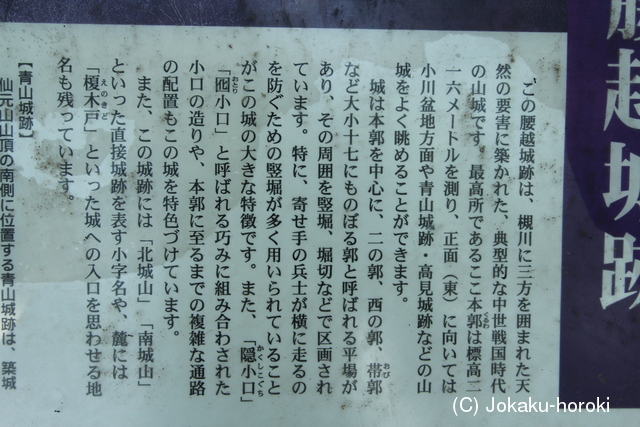 腰越城跡
この腰越城跡は、槻川に三方を囲まれた天
然の要害に築かれた、典型的な中世戦国時代
の山城です。最高所であるここ本郭は標高二
くるわ
一六メートルを測り、正面（東）に向いては
小川盆地方面や青山城跡・高見城跡などの山
城をよく眺めることができます。
城は本郭を中心に、二の郭、西の郭、帯郭
おび
など大小十七にものぼる郭と呼ばれる平場が
あり、その周囲を竪堀、堀切などで区画され
ています。特に、寄せ手の兵士が横に走るの
を防ぐための竪堀が多く用いられていること
がこの城の大きな特徴です。また、「隠小口」
かくしこぐち
「囮小口」と呼ばれる巧みに組み合わされた
おとり
小口の造りや、本郭に至るまでの複雑な通路
の配置もこの城を特色づけています。
また、この城跡には「北城山」「南城山」
といった直接城跡を表す小字名や、麓には
「榎木戸」といった城への入口を思わせる地
えのきど
名も残っています。
【青山城跡】
仙元山山頂の南側に位置する青山城跡は、築城
(C) Jokaku-horoki